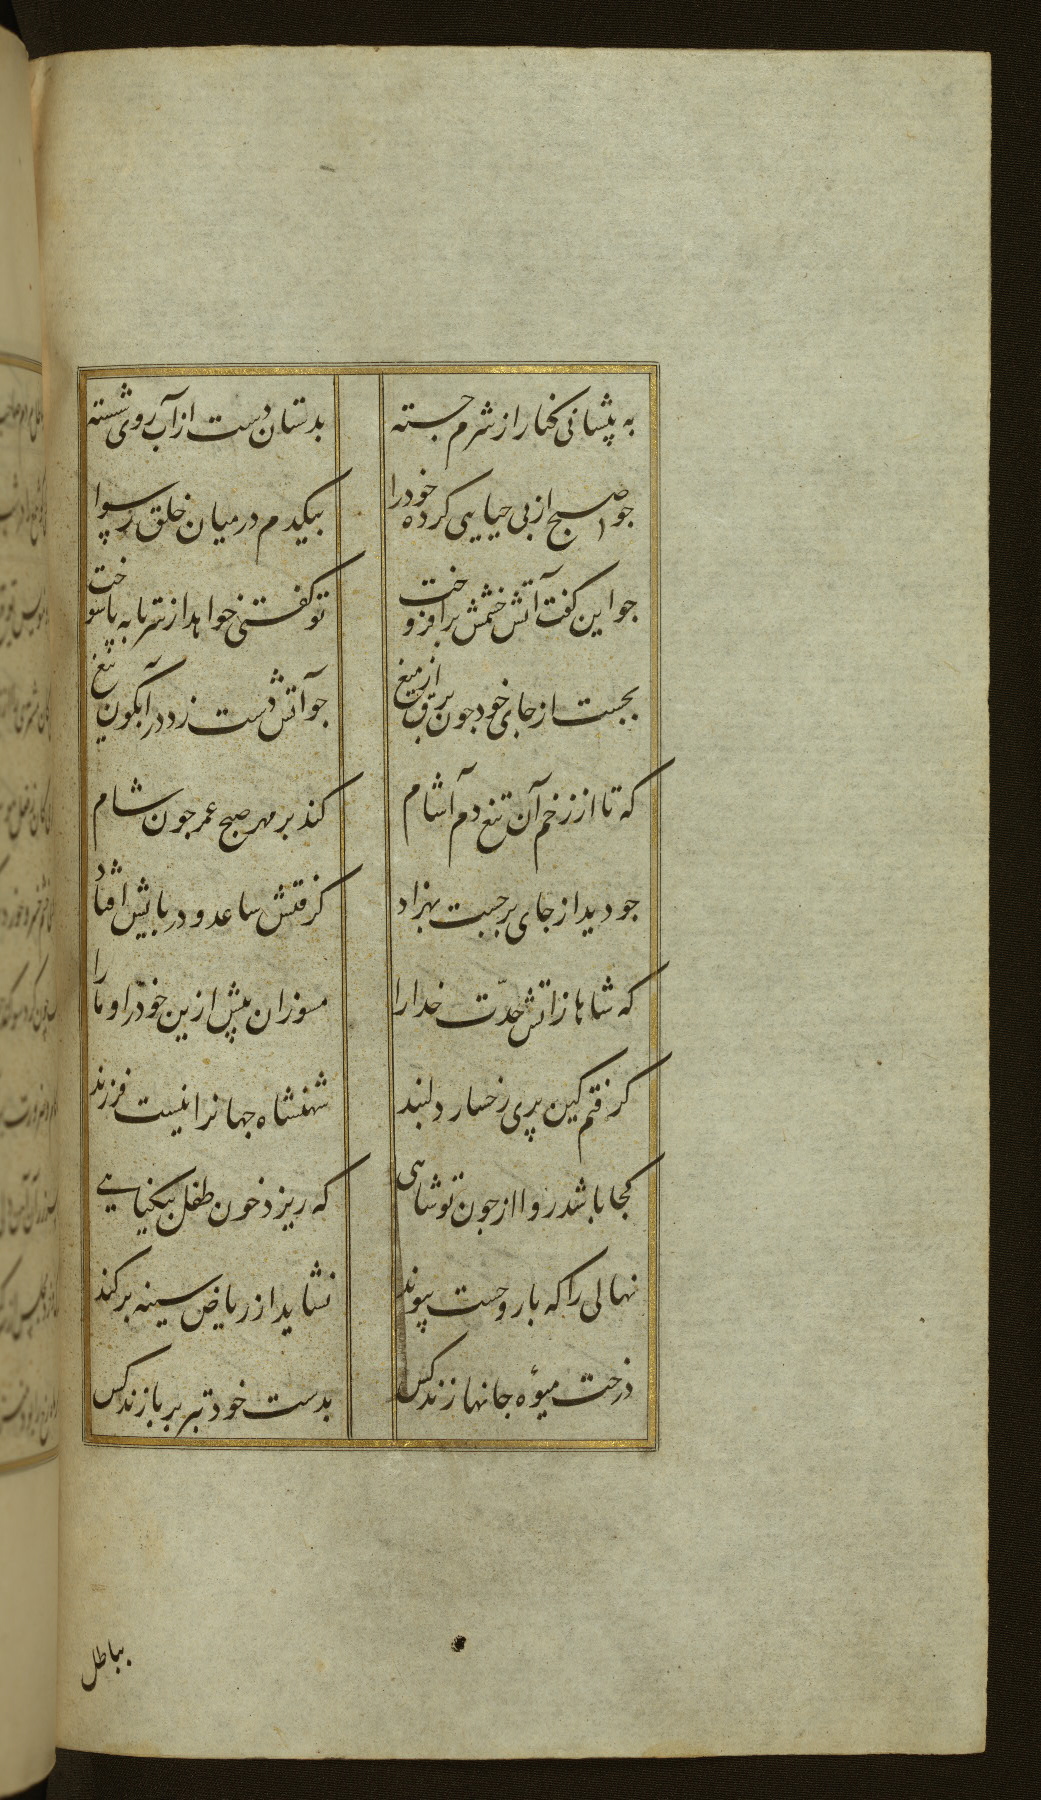 به پیشانی کنار از شرم جسته
بدستان دست از آب روی شسته
جو صبح از بی حیایی کرده خود را
بیکدم در میان خلق رسوا
جو این کفت آتش خشمش برافروخت
تو کفتنی خواهد از سر تا به پا سوخت
بجست از جای خود جون برق از میغ
جو آتش دست زد در آبکون تیغ
که تا از زخم آن تیغ دم آشام
کند بر مهر صبح عمر جون شام
جو دید از جای برجست بهزاد
کرفتش ساعد و در پایش افتاد
که شاها ز اتش حدّت خدا را
مسوزان پیش ازین خود را و ما را
کرفتم کین پری رخسار دلبند
شهنشاه جهانرا نیست فرزند
کجا باشد روا از جون تو شاهی
که ریزد خون طفل بیکناهی
نهالی را که با روحست پیوند
نشاید از ریاض سینه بر کند
درخت میؤه جانها زند کس
بدست خود تبر بر باز زند کس
بباطل